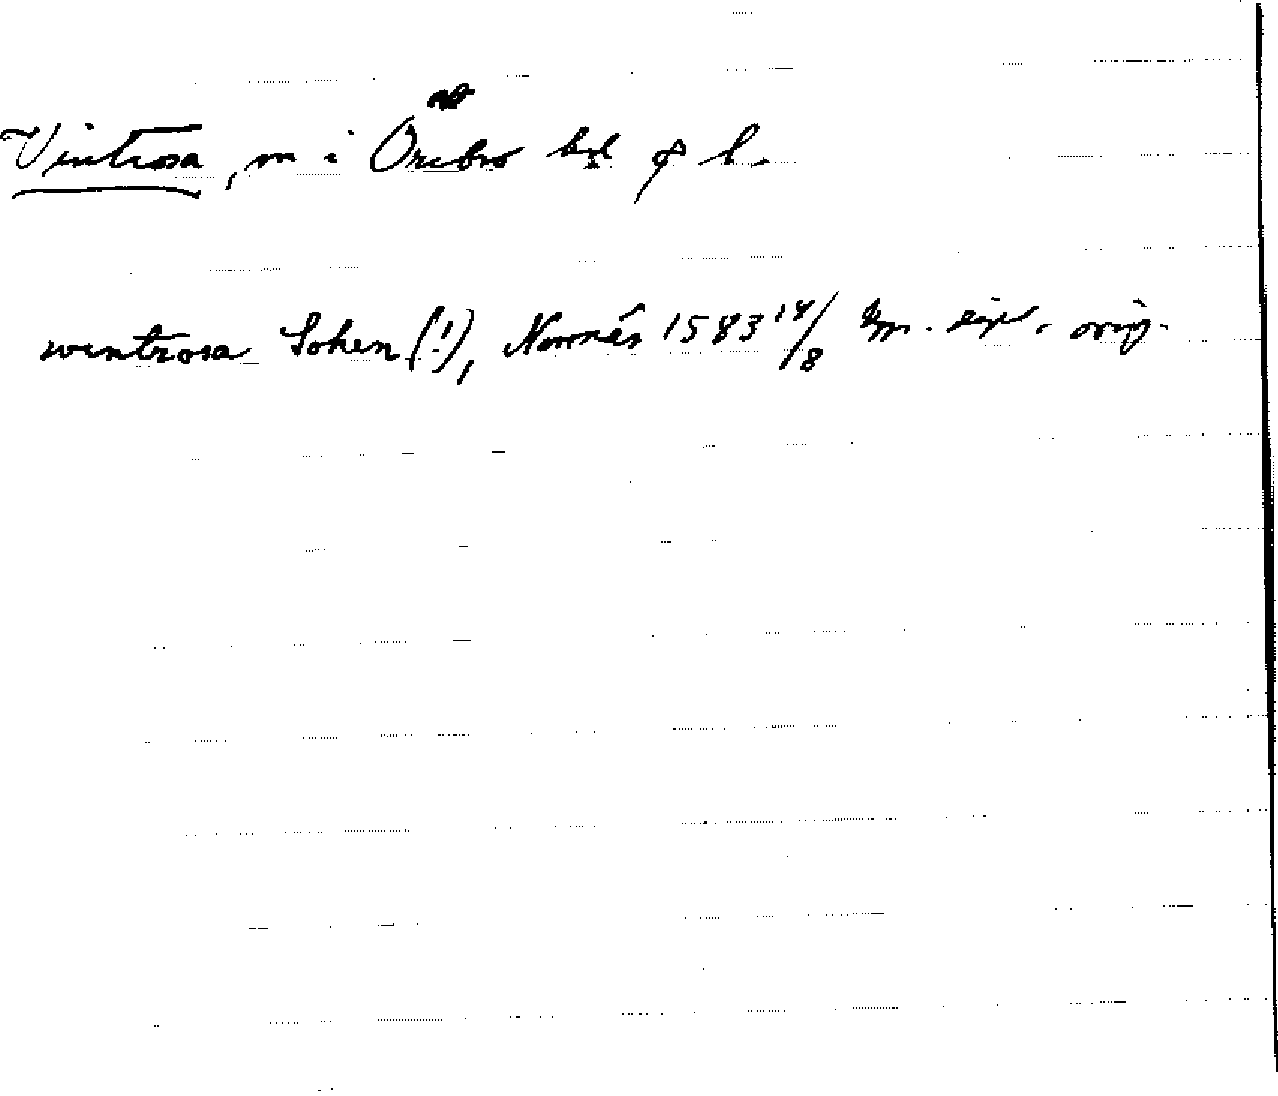 Vintrosa, sn i Örebro hd o l.
wintrosa Sohen (!), Nornäs 1583 14/8 Upr. dipl. orig.